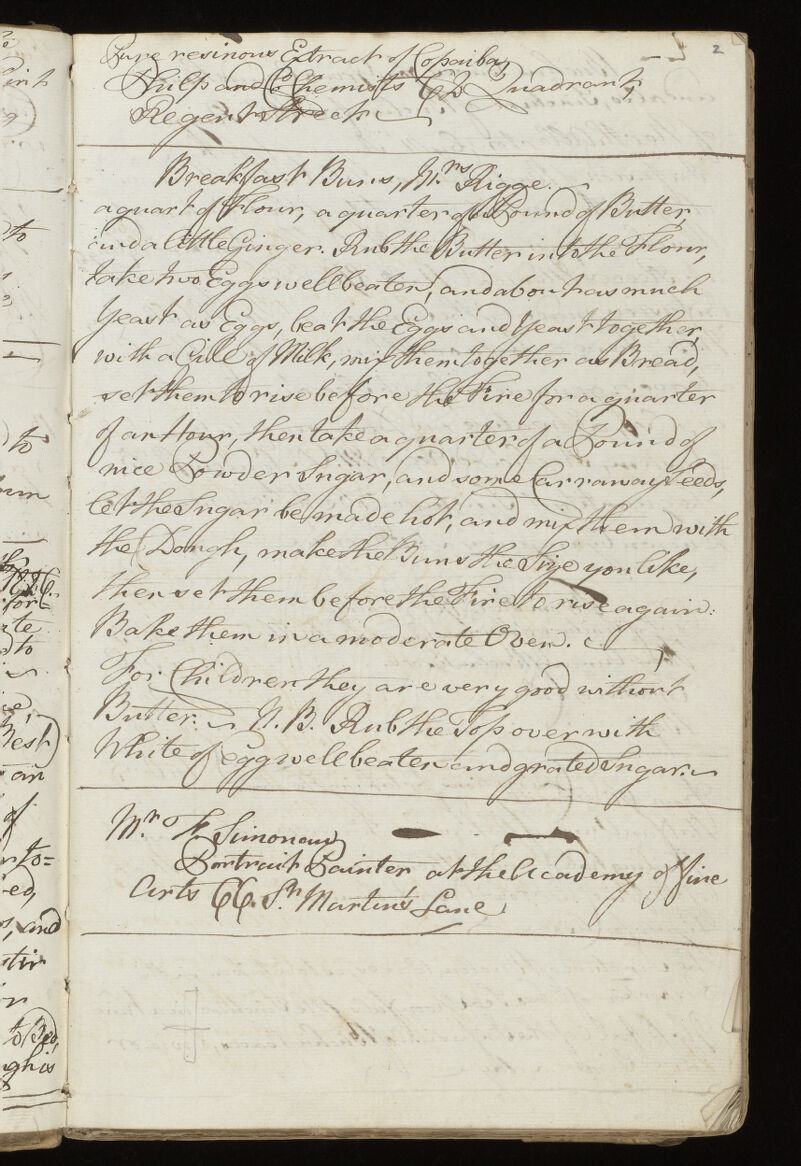 2
Pure resinous Extract of Copaiba,
Philp and Co Chemists Quadrant
Regent Street
Breakfast Buns, Mrs Rigge.
a quart of Flour, a quarter of a Pound of Butter,
and a little Ginger. Rub the Butter into the Flour,
take two Eggs well beaten, and about as much
Yeast as Eggs, beat the Eggs and Yeast together,
with a Gill of Milk, mix them together as Bread,
set them to rise before the Fire for a quarter
of an Hour, then take a quarter of a Pound of
nice Powder Sugar, and some Carraway Seeds,
let the Sugar be made hot, and mix them with
the Dough, make the Buns the Size you like,
then set them before the Fire to rise again:
Bake them in a moderate Oven.
For Children they are very good without
Butter. N.B. Rub the Top over with
White of egg well beaten and grated Sugar.
Mr F. Simonau
Portrait Painter at the Academy of Fine
Arts 66. St Martin's Lane